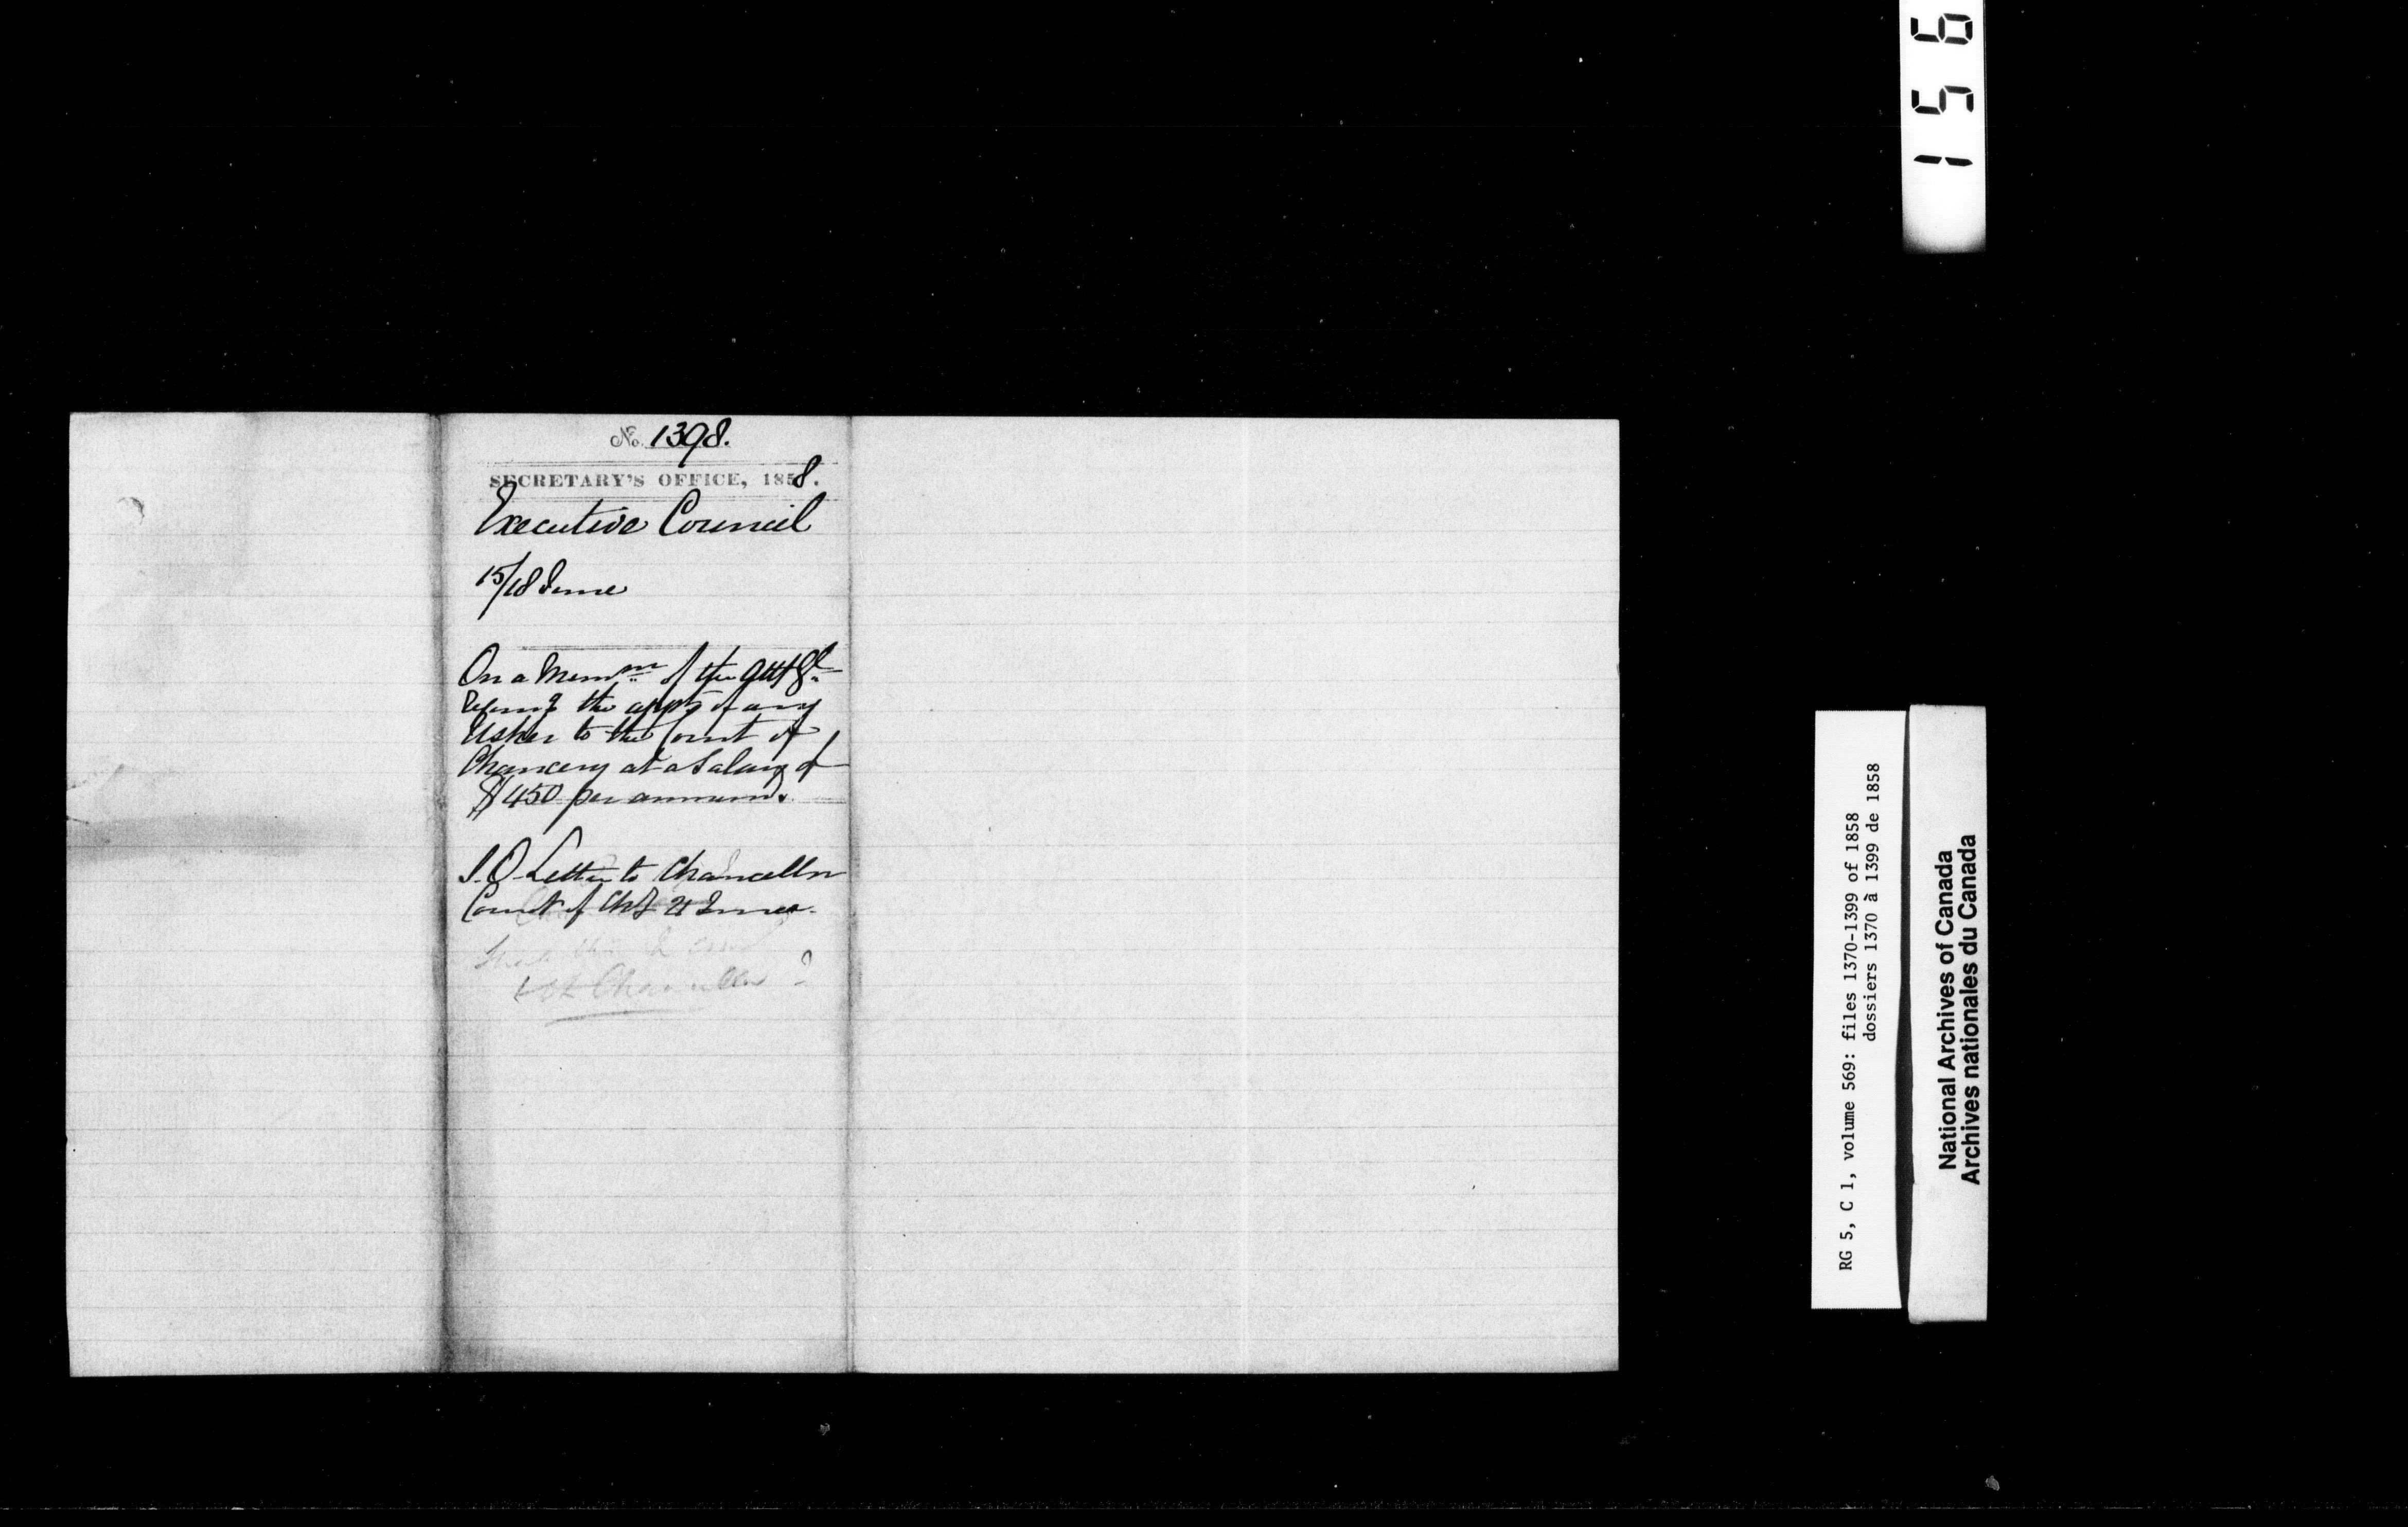 No. 1398.
SECRETARY'S OFFICE, 1858.
Executive Council
15/18 June
On a Memm of the Att Gl
the appt of any
Usher to the Court of
Chancery at a Salary of
$450 per annum.
Letter to Chancellor
Court of Chy 21 June.
Chancellor ?
156
RG 5, C 1, volume 569: files 1370-1399 of 1858
dossiers 1370 à 1399 de 1858
National Archives of Canada
Archives nationales du Canada